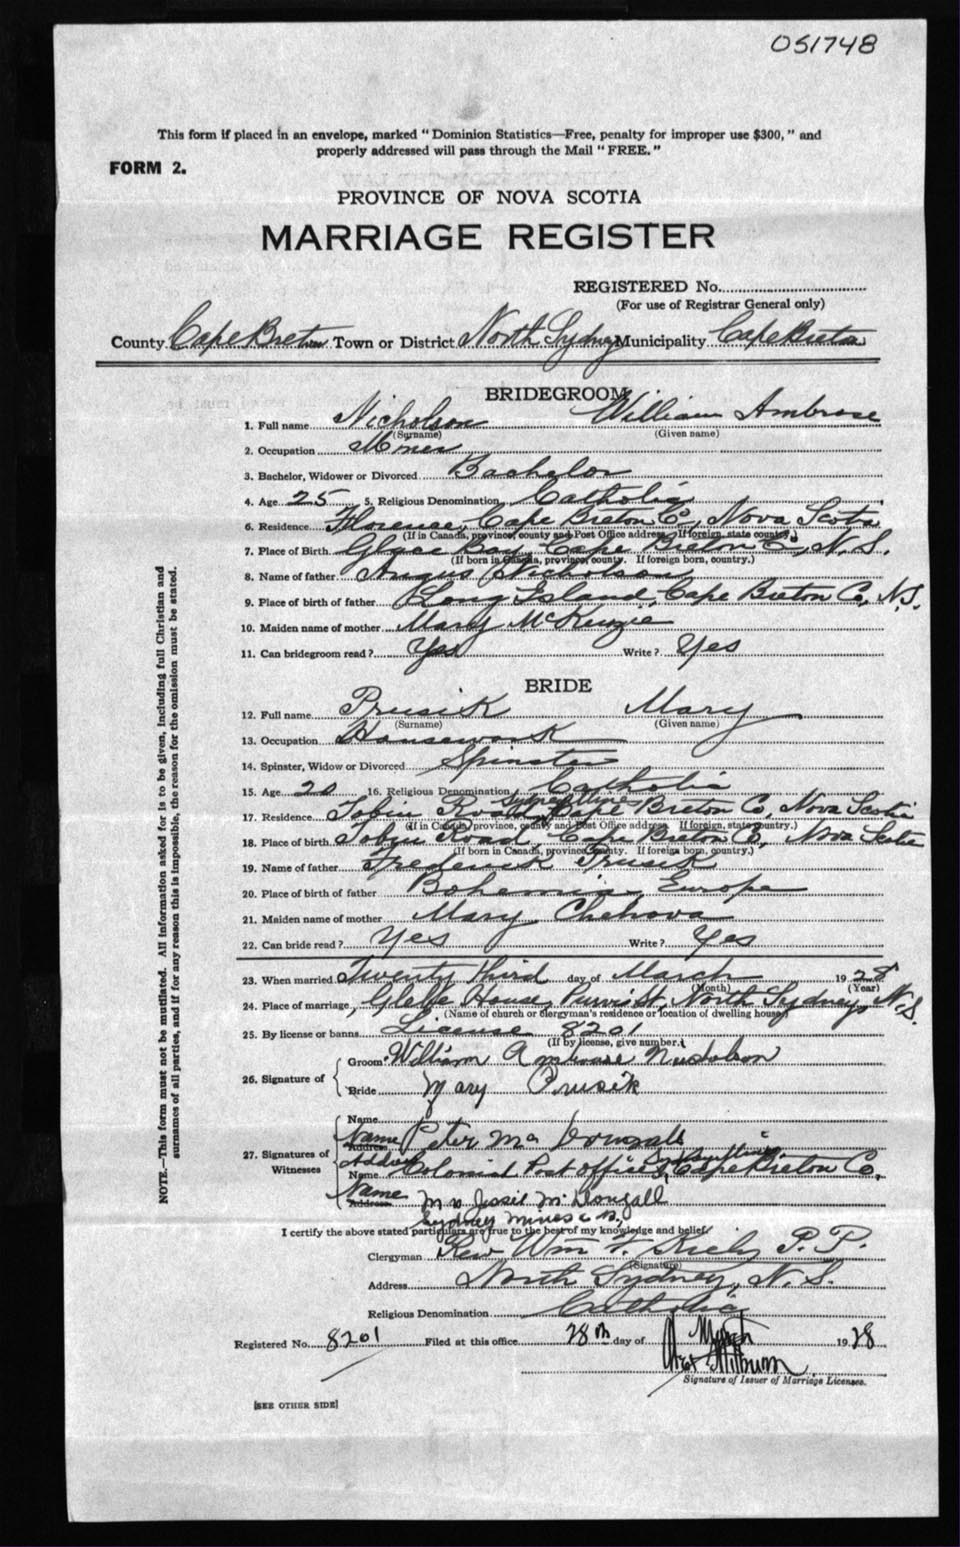 051748
This form if placed in an envelope, marked " Dominion Statistics—Free, penalty for improper use $300, " and
properly addressed will pass through the Mail " FREE. "
FORM 2.
PROVINCE OF NOVA SCOTIA
MARRIAGE REGISTER
REGISTERED No.
(For use of Registrar General only)
County Cape Breton Town or District North Sydney Municipality Cape Breton
BRIDEGROOM
1. Full name Nicholson William Ambrose
(Surname) (Given name)
2. Occupation Miner
3. Bachelor, Widower or Divorced Bachelor
4. Age 25 5. Religious Denomination Catholic
6. Residence Florence, Cape Breton Co, Nova Scotia
(If in Canada, province, county and Post Office address. If foreign, state country.)
7. Place of Birth Glace Bay, Cape Breton Co, N.S.
(If born in Canada, province, county. If foreign born, country.)
8. Name of father Angus Nicholson
9. Place of birth of father Long Island, Cape Breton Co, N.S.
10. Maiden name of mother Mary McKenzie
11. Can bridegroom read? Yes Write? Yes
BRIDE
12. Full name Prusik Mary
(Surname) (Given name)
13. Occupation Housework
14. Spinster, Widow or Divorced Spinster
15. Age 20 16. Religious Denomination Catholic
Sydney Mines
17. Residence Tobin Road, Cape Breton Co, Nova Scotia
(If in Canada, province, county and Post Office address. If foreign, state country.)
18. Place of birth Tobin Road, Cape Breton Co, Nova Scotia
(If born in Canada, province, county. If foreign born, country.)
19. Name of father Frederick Prusik
20. Place of birth of father Bohemia, Europe
21. Maiden name of mother Mary Chehova
22. Can bride read? Yes Write? Yes
23. When married Twenty third day of March 1928
(Month) (Year)
24. Place of marriage Glebe House, Purves St, North Sydney, N.S.
(Name of church or clergyman's residence or location of dwelling house)
25. By license or banns License 8201
(If by license, give number.)
26. Signature of
Groom William Ambrose Nicholson
Bride Mary Prusik
27. Signatures of Witnesses
Name
Address
Name Peter McDougall
Address
Name Colonial Post office, Cape Breton Co,
Address
Name Mrs Jessie McDougall
Sydney Mines C B,
I certify the above stated particulars are true to the best of my knowledge and belief.
Clergyman Rev Wm F. Kiely P.P.
(Signature)
Address North Sydney, N.S.
Religious Denomination Catholic
Registered No. 8201 Filed at this office 28th day of March 1928
Signature of Issuer of Marriage Licenses.
[SEE OTHER SIDE]
NOTE.—This form must not be mutilated. All information asked for is to be given, including full Christian and
surnames of all parties, and if for any reason this is impossible, the reason for the omission must be stated.